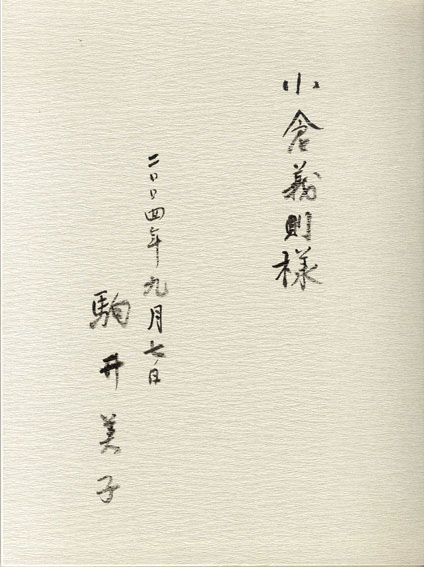 小倉義則様
二〇〇四年九月七日
駒井美子